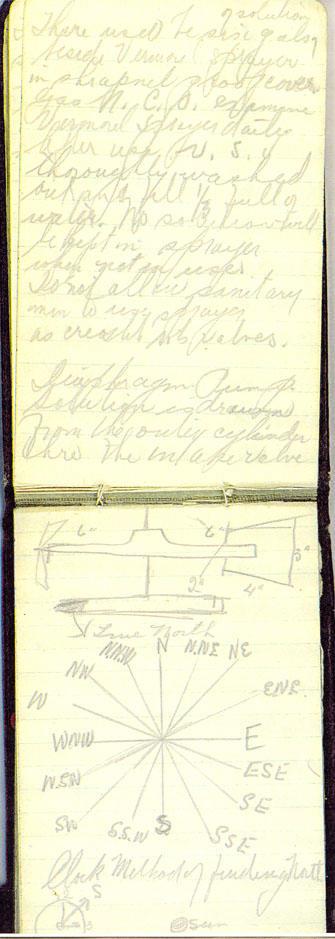 of solution
There used to be six gals
beside Vermorel sprayer
in shrapnel proof cover
Gas N.C.O. examine
Vermorel Sprayer daily
after use V. S. is
thoroughly washed
out and fill 1/3 full of
water. No solution will
be kept in sprayer
when not in use
Do not allow sanitary
men to use sprayer
as creosol valves.
Diaphragm Pump
Solution is drawn
from the outer cylinder
thro the intake valve
6" 6"
3"
2" 4"
True North
NNW N N.NE NE
NW
ENE
W
WNW E
W.SW ESE
SE
SW S.S.W S SSE
Clock Method of finding North
S
Sun